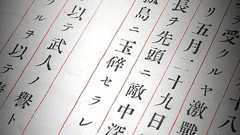 受クルヤ激戰
リ五月二十九日
長ヲ先頭ニ敵中深
孤島ニ玉碎セラレ
以テ武人ノ譽ト
ルヲ以テ